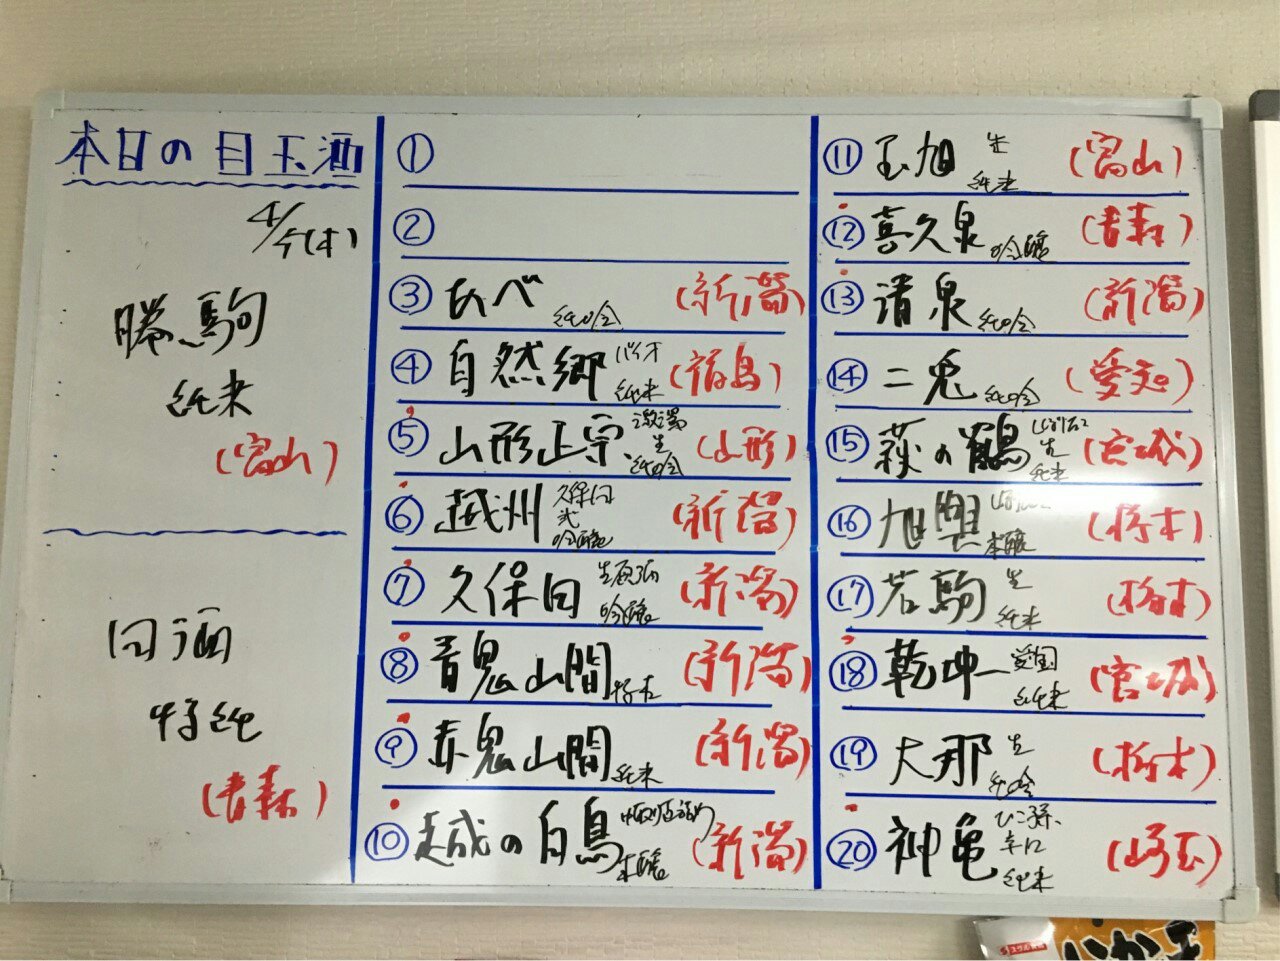 本日の目玉酒
4/5(木)
勝駒
純米
(富山)
田酒
特純
(青森)
①
②
③ あべ 純吟 (新潟)
④ 自然郷 バイオ 純米 (福島)
⑤ 山形正宗 生 純吟 (山形)
⑥ 越州 久保田 弐 吟醸 (新潟)
⑦ 久保田 生原酒 吟醸 (新潟)
⑧ 青鬼山間 特本 (新潟)
⑨ 赤鬼山間 純米 (新潟)
⑩ 越の白鳥 中取り直詰め 本醸 (新潟)
⑪ 玉旭 生 純米 (富山)
⑫ 喜久泉 吟醸 (青森)
⑬ 清泉 純吟 (新潟)
⑭ 二兎 純吟 (愛知)
⑮ 萩の鶴 しぼりたて 生 純米 (宮城)
⑯ 旭興 本醸 (栃木)
⑰ 若駒 生 純米 (栃木)
⑱ 乾坤一 愛国 純米 (宮城)
⑲ 大那 生 純吟 (栃木)
⑳ 神亀 ひこ孫 辛口 純米 (埼玉)